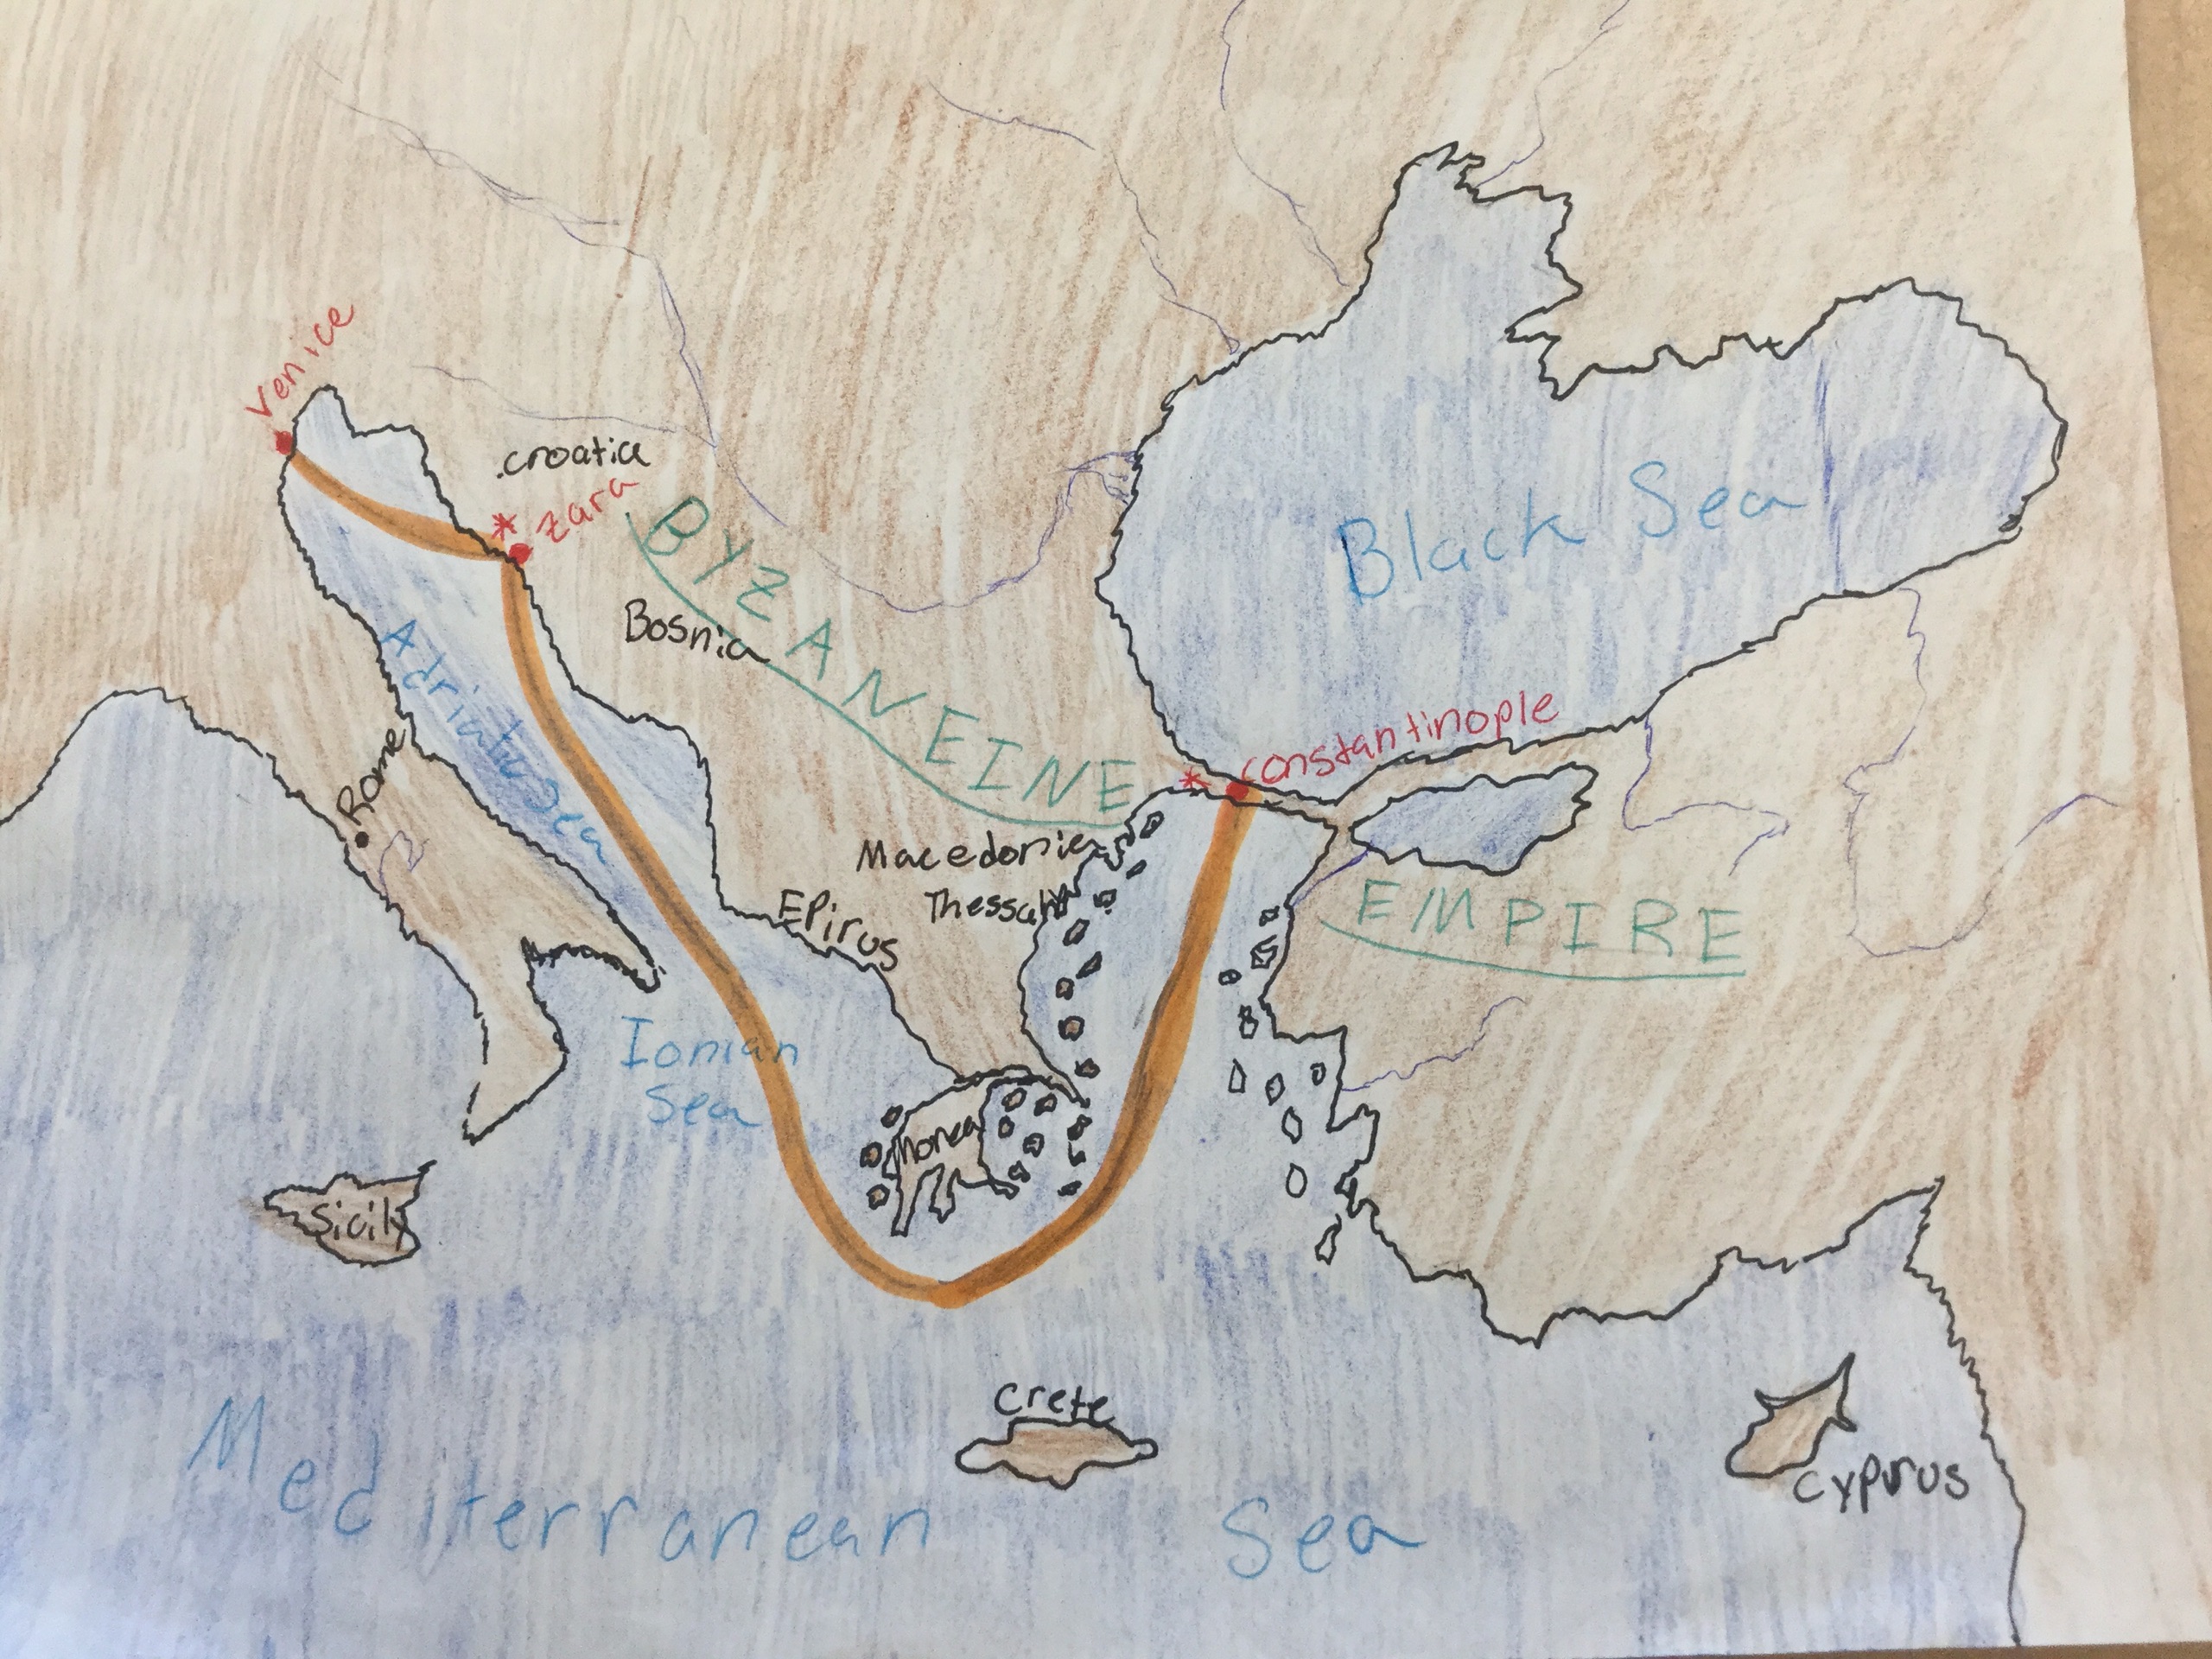 Venice
.croatia
* zara
BYZANEINE
Bosnia
Black Sea
Adriatic Sea
Rome
* Constantinople
Macedonia
Thessaly
Epirus
EMPIRE
Ionian
Sea
Morea
Sicily
Crete
Cyprus
Mediterranean Sea